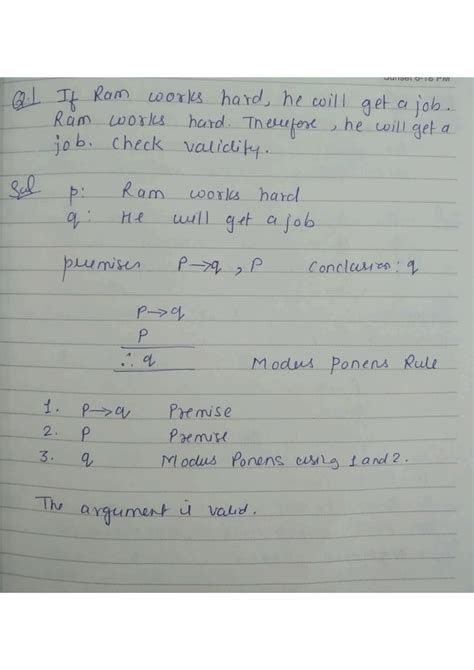 Sunset 6-18 PM
Q.1 If Ram works hard, he will get a job.
Ram works hard. Therefore, he will get a
job. Check validity.
Sol p: Ram works hard
q: He will get a job
premises P→q, P Conclusion: q
P→q
P
∴ q Modus Ponens Rule
1. P→q Premise
2. P Premise
3. q Modus Ponens using 1 and 2.
The argument is valid.